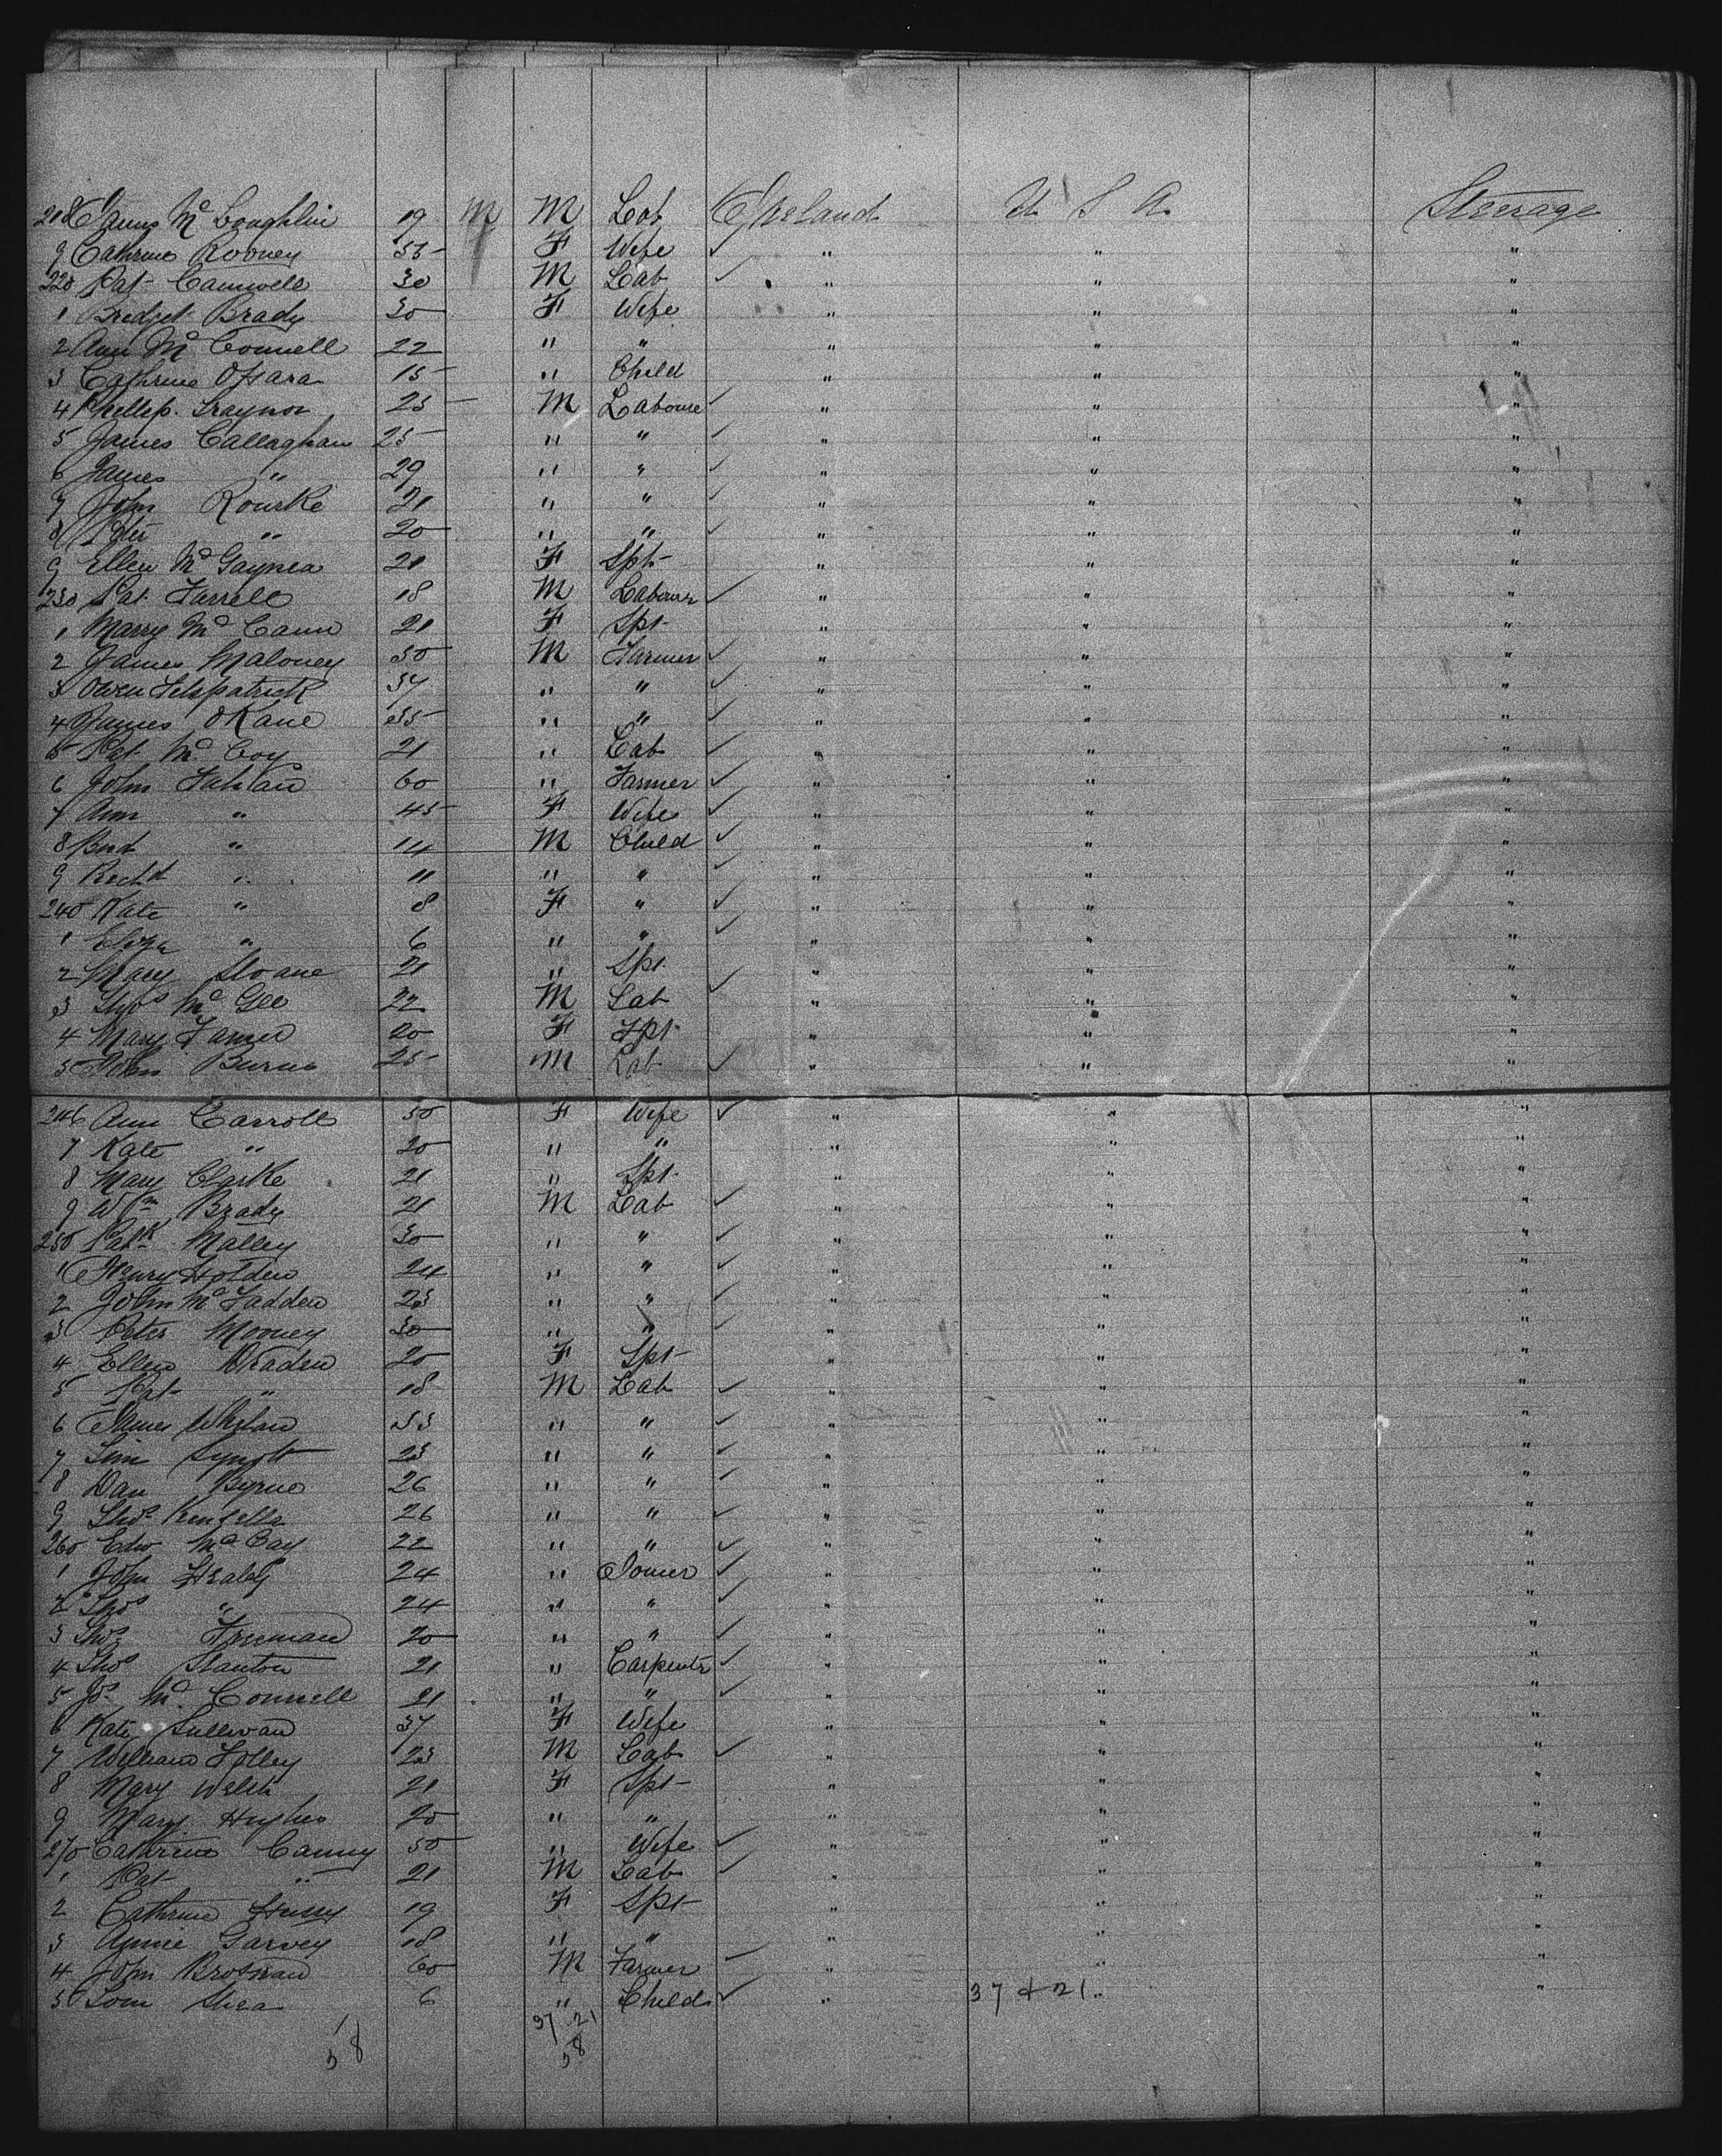 218 James Mc Loughlin 19 M M Lab Ireland U S A Steerage
9 Cathrine Rooney 35 F Wife ✓ " " "
220 Pat Camwell 30 M Lab ✓ " " "
1 Bridget Brady 30 F Wife " " "
2 Ann Mc Connell 22 " " " " "
3 Cathrine OHara 15 " Child " " "
4 Phillip Traynor 25 M Laboure ✓ " " "
5 James Callaghan 25 " " ✓ " " "
6 James " 29 " " ✓ " " "
7 John Rourke 21 " " ✓ " " "
8 Peter " 20 " " ✓ " " "
9 Ellen Mc Gaynea 21 F Spt " " "
230 Pat Farrell 18 M Labourr ✓ " " "
1 Marry Mc Cann 21 F Spt " " "
2 James Maloney 50 M Farmer ✓ " " "
3 Owen Fitspatrick 37 " " ✓ " " "
4 James OKane 35 " " ✓ " " "
5 Pat Mc Coy 21 " Lab ✓ " " "
6 John 60 " Farmer ✓ " " "
7 Ann " 45 F Wife ✓ " " "
8 " 14 M Child ✓ " " "
9 Richd " 11 " " ✓ " " "
240 Kate " 8 F " ✓ " " "
1 Eliza " 6 " " ✓ " " "
2 Mary Sloane 21 " Spt " " "
3 Thos Mc Gee 22 M Lab ✓ " " "
4 Mary 20 F Spt " " "
5 John Burns 25 M Lab ✓ " " "
246 Ann Carroll 50 F Wife ✓ " " "
7 Kate " 20 " " " " "
8 Mary Clarke 21 " Spt " " "
9 Wm Brady 21 M Lab ✓ " " "
250 Patk Malley 30 " " ✓ " " "
1 Henry Holden 24 " " ✓ " " "
2 John Mc Fadden 23 " " ✓ " " "
3 Peter Mooney 30 " " ✓ " " "
4 Ellen 20 F Spt " " "
5 Pat " 18 M Lab ✓ " " "
6 James Whelan 33 " " ✓ " " "
7 Jim Synott 23 " " ✓ " " "
8 Dan Byrne 26 " " ✓ " " "
9 Thos Kensella 26 " " ✓ " " "
260 Edw Mc Cay 22 " " ✓ " " "
1 John Healey 24 " Joiner ✓ " " "
2 Thos " 24 " " ✓ " " "
3 Thos Freeman 20 " " ✓ " " "
4 Thos Stanton 21 " Carpentr ✓ " " "
5 Jos Mc Connell 21 " " ✓ " " "
6 Kate Sullivan 37 F Wife " " "
7 William Folley 23 M Lab ✓ " " "
8 Mary Welsh 21 F Spt " " "
9 Mary Hughes 20 " " " " "
270 Cathrine Canny 50 " Wife ✓ " " "
1 Pat " 21 M Lab ✓ " " "
2 Cathrine Hussy 19 F Spt " " "
3 Annie Garvey 18 " " " " "
4 John Brosnan 60 M Farmer ✓ " " "
5 Tom Shea 6 " Child ✓ " 37 + 21 " "
37 21
58 58